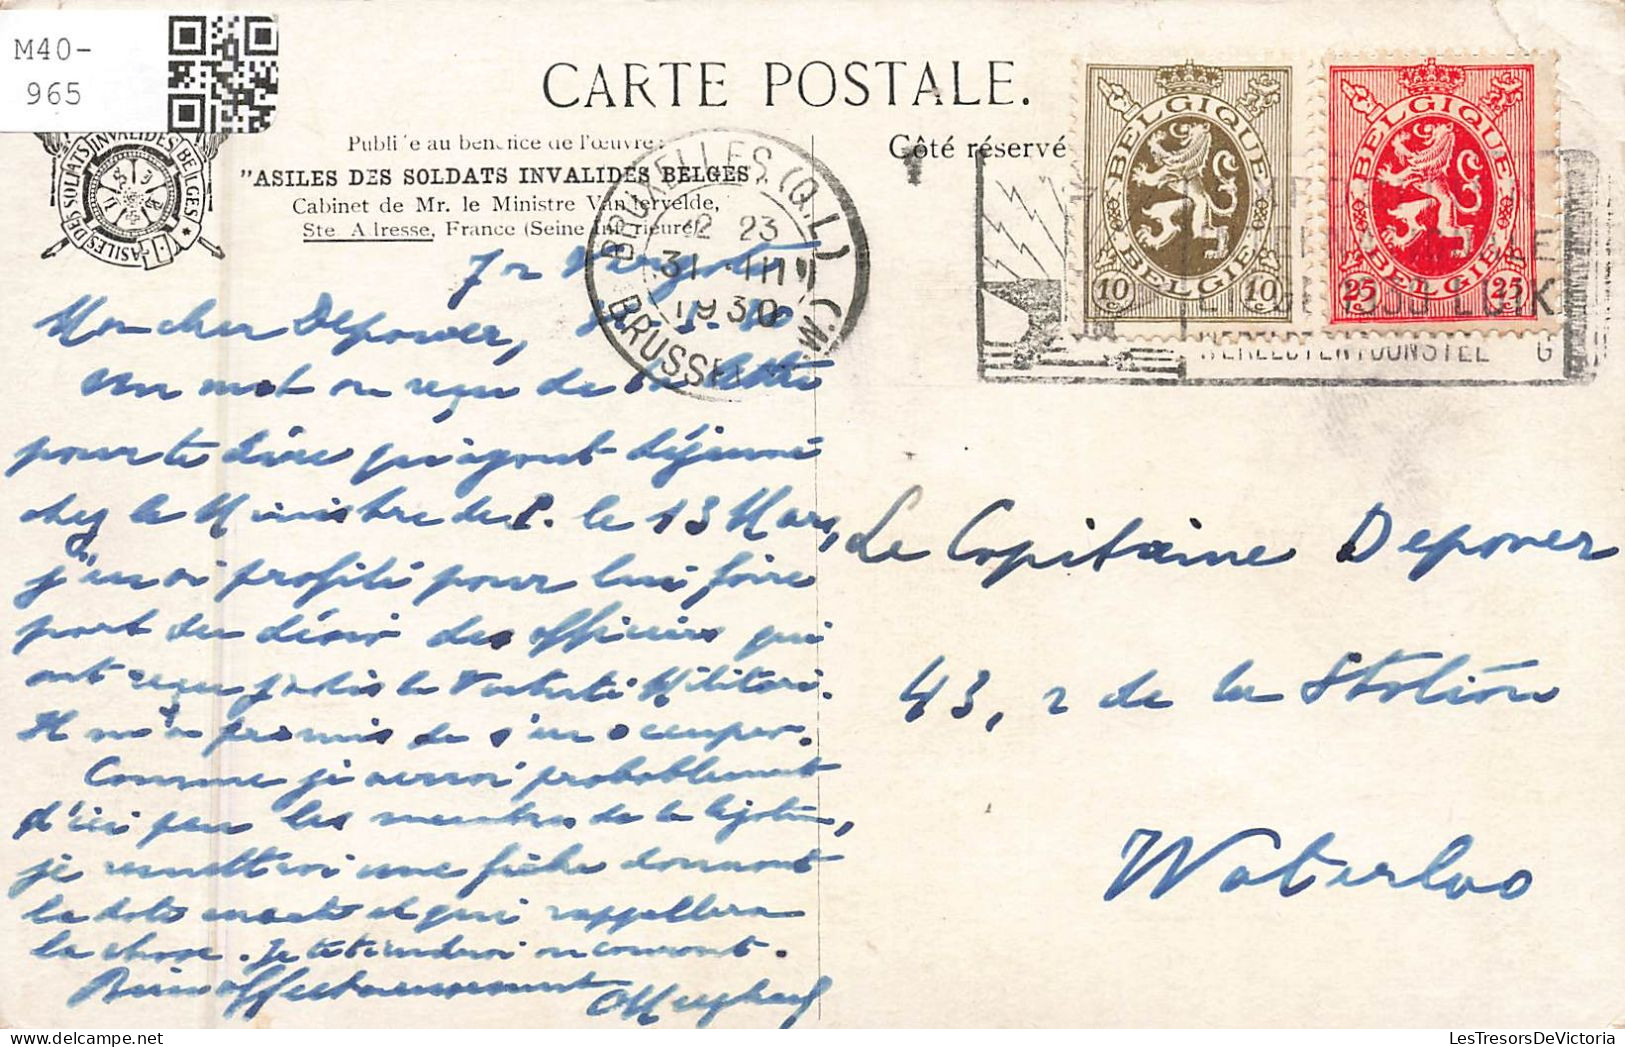 M40-
965
CARTE POSTALE.
Publiée au bénéfice de l'œuvre:
"ASILES DES SOLDATS INVALIDES BELGES",
Cabinet de Mr. le Ministre Vandervelde,
Ste Adresse, France (Seine Inférieure)
ASILES DES SOLDATS INVALIDES BELGES
Côté réservé
BRUXELLES (Q.L)
12 23
31 III
1930
BRUSSEL
BELGIQUE
BELGIE
10 c 10 c
BELGIQUE
BELGIE
25 c 25 c
WERELDTENTOONSTEL G
Mon cher Depover,
Un mot reçu de
pour te dire qu'ayant déjeuné
chez le Ministre de le 13 Mars,
j'en ai profité pour lui faire
part du désir des officiers qui
ont reçu jadis la Militaire.
Il m'a promis de s'en occuper.
Comme je aurai probablement
d'ici peu les membres de la
je remettrai une fiche donnant
la date exacte et qui rappellera
la chose. Je te tiendrai au courant.
Bien affectueusement
Le Capitaine Depover
43, r de la Station
Waterloo
LesTresorsDeVictoria